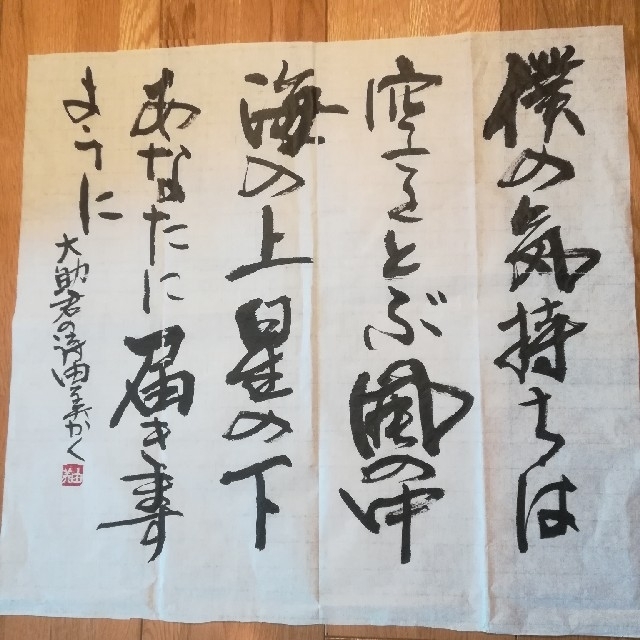 僕の気持ちは
空をとぶ風の中
海の上星の下
あなたに届きます
ように
大助君の詩由美かく